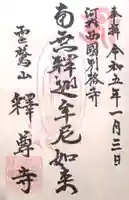 奉拝 令和五年一月三日
河内西國別格寺
南無釋迦牟尼如来
霊鷲山
釋尊寺